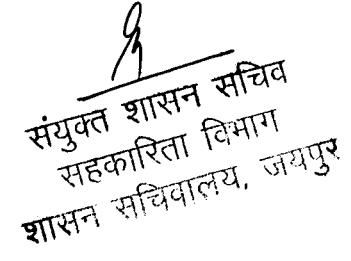 संयुक्त शासन सचिव
सहकारिता विभाग
शासन सचिवालय, जयपुर